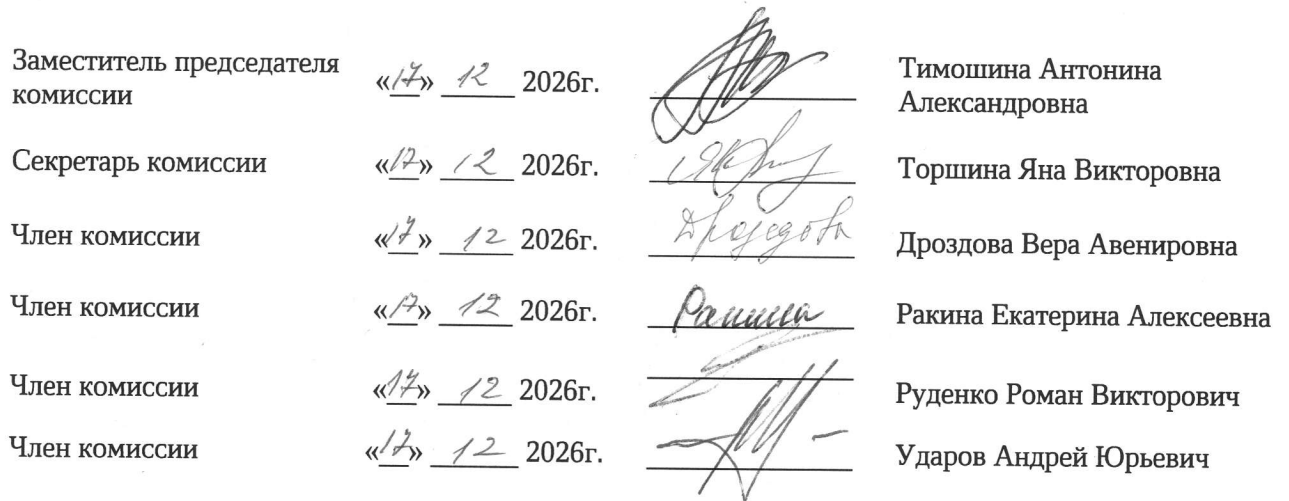 Заместитель председателя комиссии «17» 12 2026г. Тимошина Антонина Александровна
Секретарь комиссии «17» 12 2026г. Торшина Яна Викторовна
Член комиссии «17» 12 2026г. Дроздова Дроздова Вера Авенировна
Член комиссии «17» 12 2026г. Ракина Ракина Екатерина Алексеевна
Член комиссии «17» 12 2026г. Руденко Роман Викторович
Член комиссии «17» 12 2026г. Ударов Андрей Юрьевич